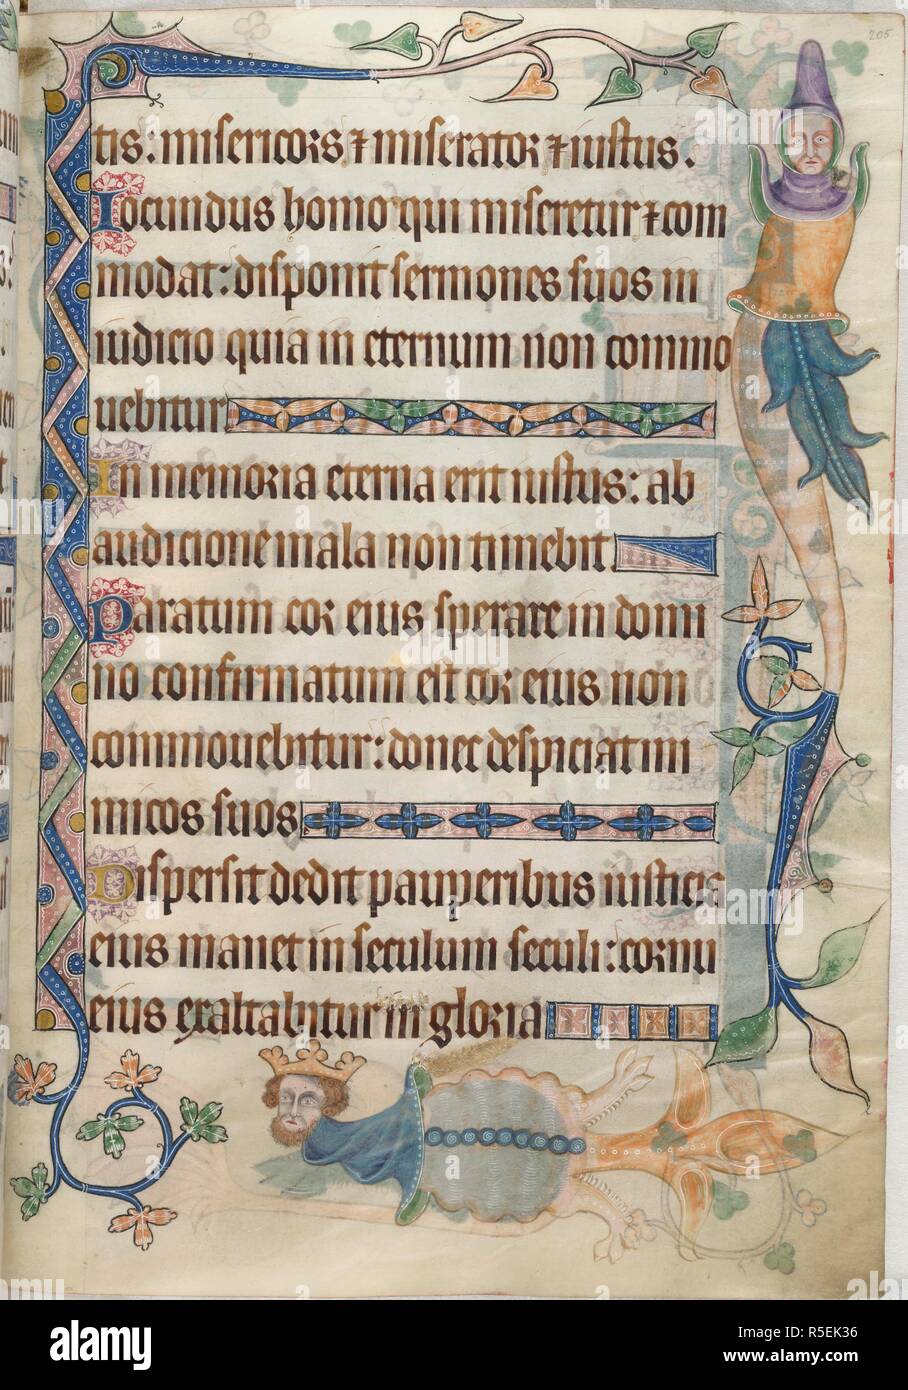 205
tis: misericors ⁊ miserator ⁊ iustus.
Iocundus homo qui miseretur ⁊ com
modat: disponit sermones suos in
iudicio quia in eternum non commo
uebitur
In memoria eterna erit iustus: ab
audicione mala non timebit.
Paratum cor eius sperare in domi
no confirmatum est cor eius non
commouebitur: donec despiciat ini
micos suos
Dispersit dedit pauperibus iusticia
eius manet in seculum seculi: cornu
eius exaltabitur in gloria
alamy
Image ID: R5EK36
www.alamy.com